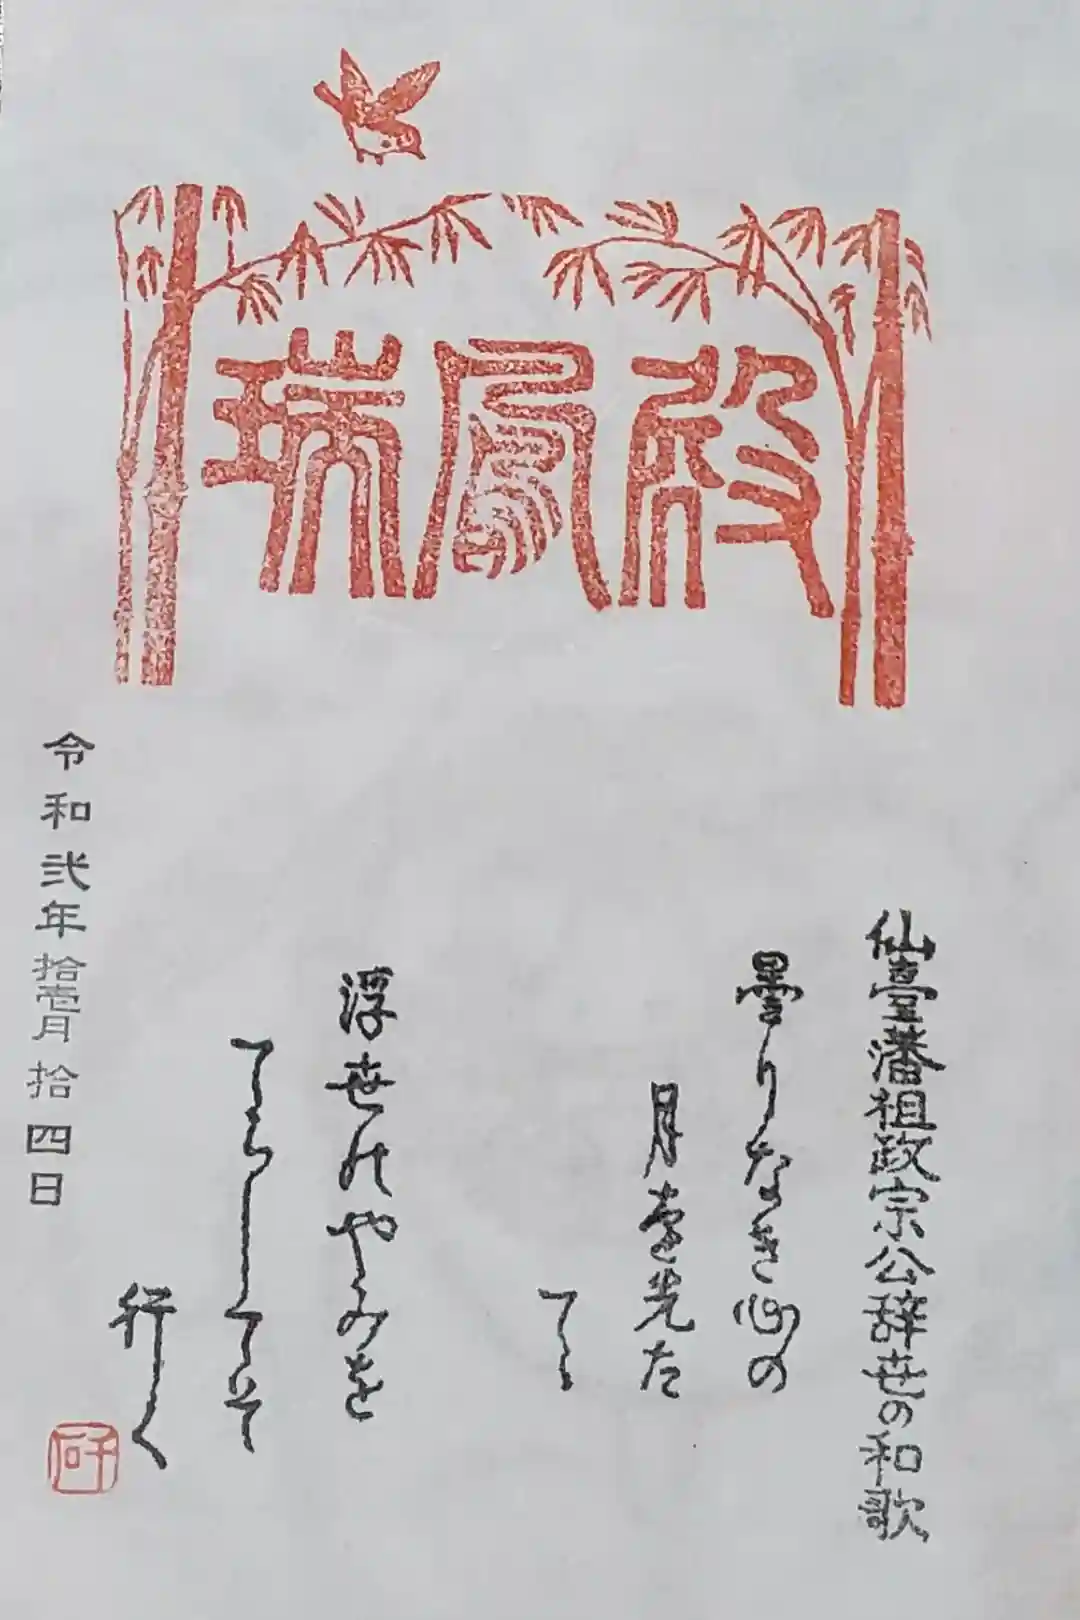 瑞鳳殿
仙臺藩祖政宗公辞世の和歌
曇りなき心の
月を先た
てゝ
浮世のやみを
てらしてそ
行く
令和弐年拾壱月拾四日